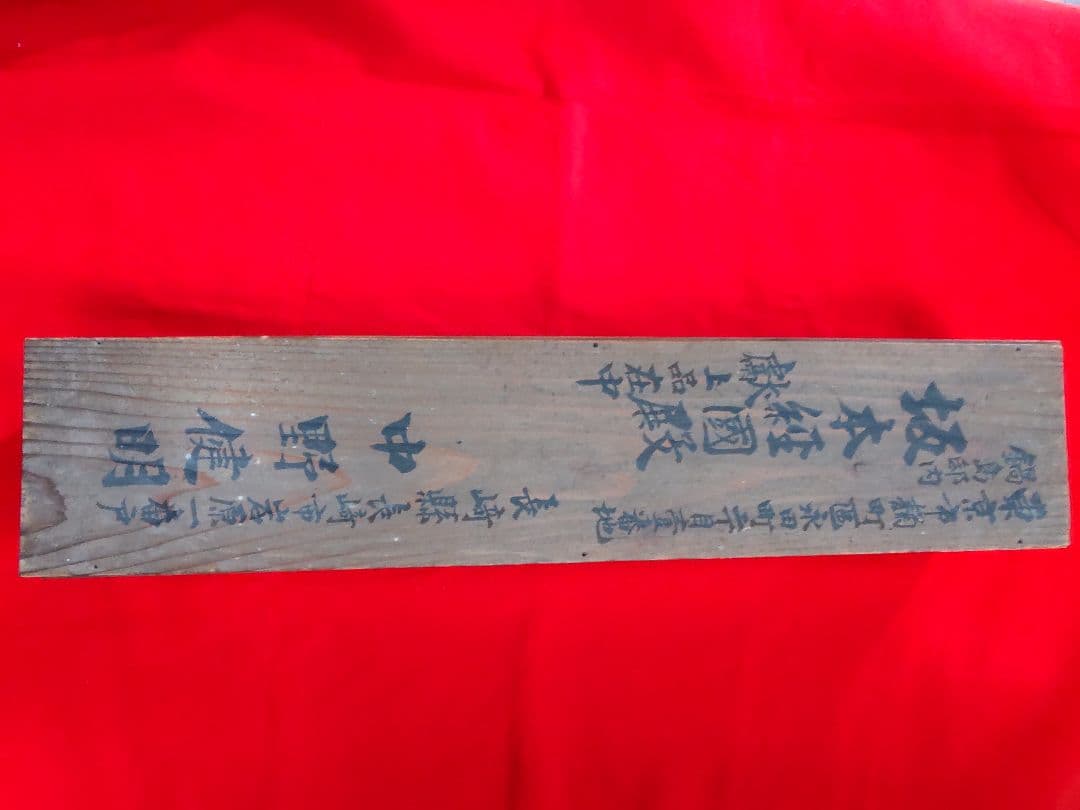 東京市麹町區永田町二丁目壹番地
鍋島邸内
坂本経國殿
献上品在中
長崎縣長崎市岩原一番戸
中野健明